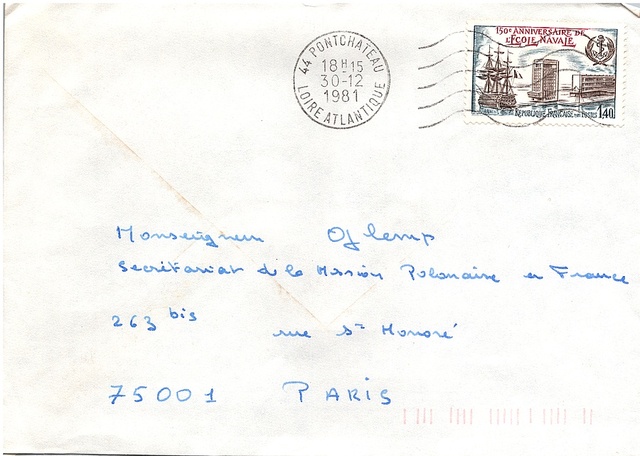 44 PONTCHATEAU
18H15
30-12
1981
LOIRE ATLANTIQUE
150e ANNIVERSAIRE DE
L'ÉCOLE NAVALE
RÉPUBLIQUE FRANÇAISE POSTES 1,40
Monseigneur Oflemp
Secrétariat de la Mission Polonaise en France
263 bis rue St Honoré
75001 PARIS